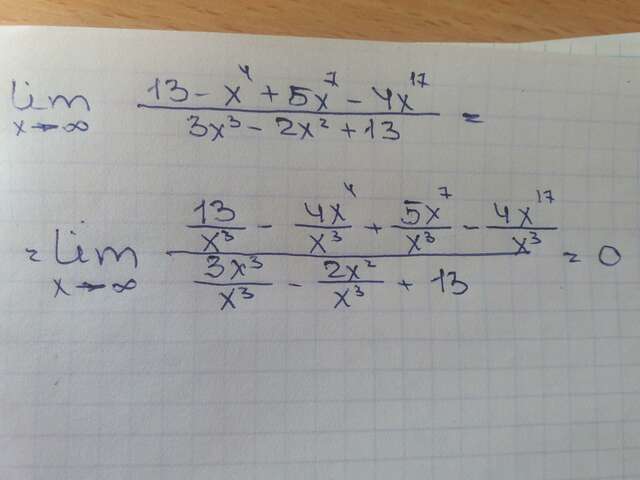 lim x→∞ (13 - x^4 + 5x^7 - 4x^17)/(3x^3 - 2x^2 + 13) =
= lim x→∞ (13/x^3 - 4x^4/x^3 + 5x^7/x^3 - 4x^17/x^3)/(3x^3/x^3 - 2x^2/x^3 + 13) = 0